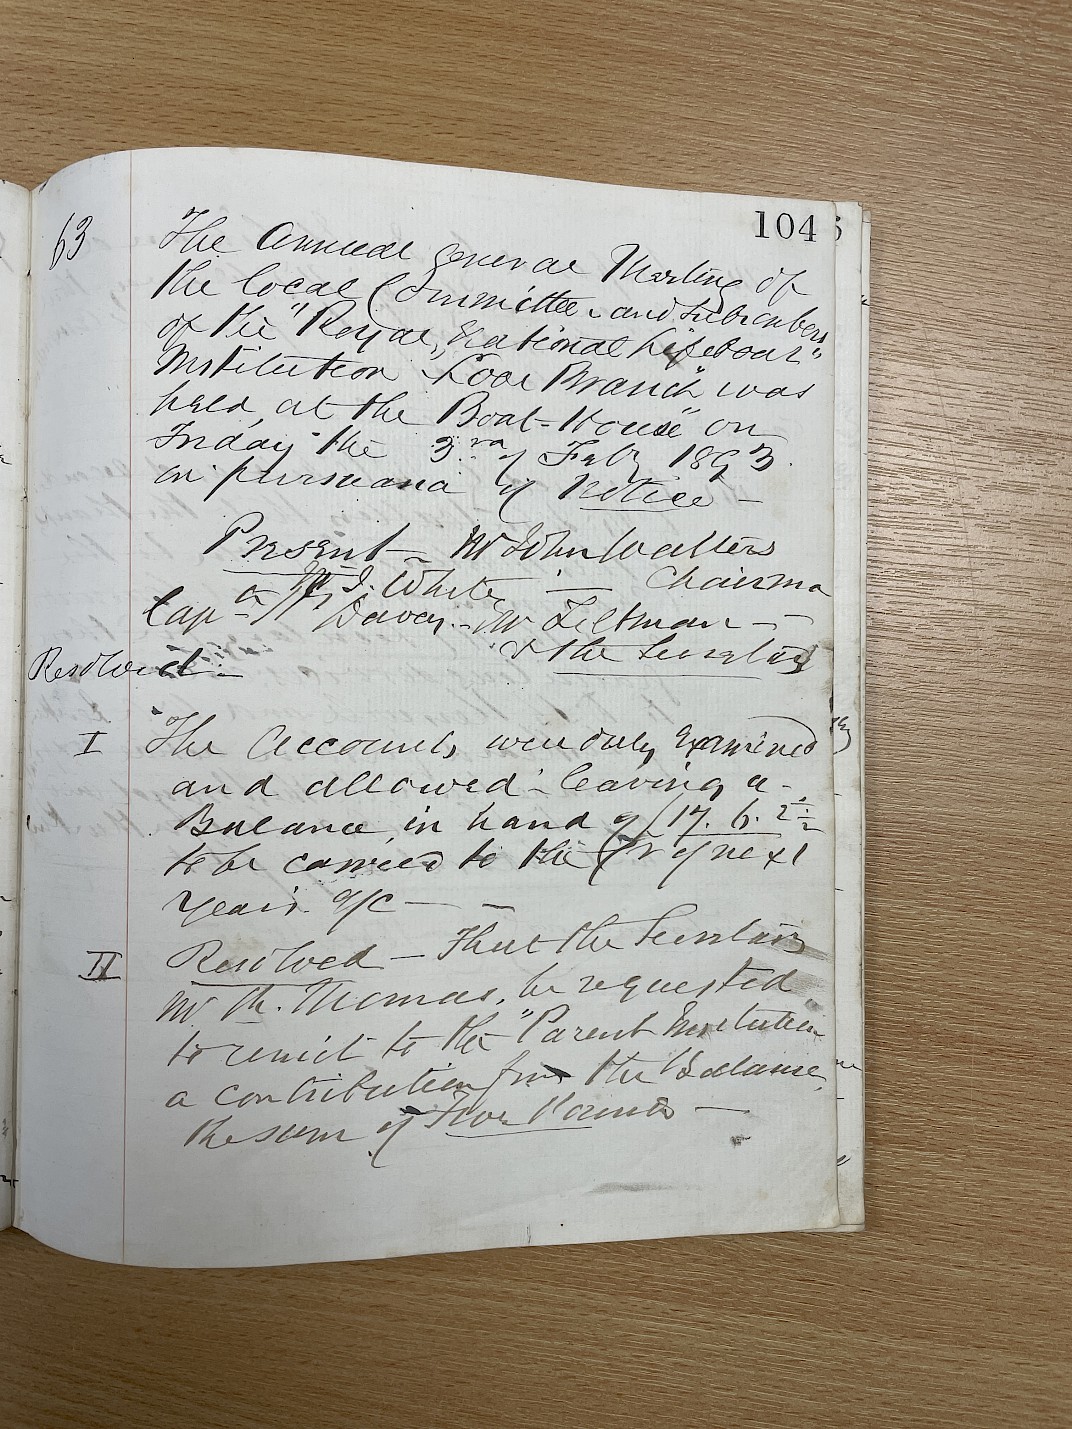 104
63
The Annual general Meeting of
the local Committee and Subscribers
of the "Royal National Lifeboat"
Institution Looe Branch" was
held at the Boat-House" on
Friday the 3rd of Feby 1893.
in pursuance of Notice —
Present — Mr John Walters
Chairma
J. White —
Capn Davey - Mr Feltman —
& the Secretary
Resolved —
I The Accounts were duly Examined
and allowed - leaving a
Balance in hand of £17. 6. 2½
to be carried to the Cr of next
years a/c —
II Resolved — That the Secretary
Mr Th. Thomas, be requested
to remit to the "Parent Institution
a contribution from the Balance,
the sum of Five Pounds —